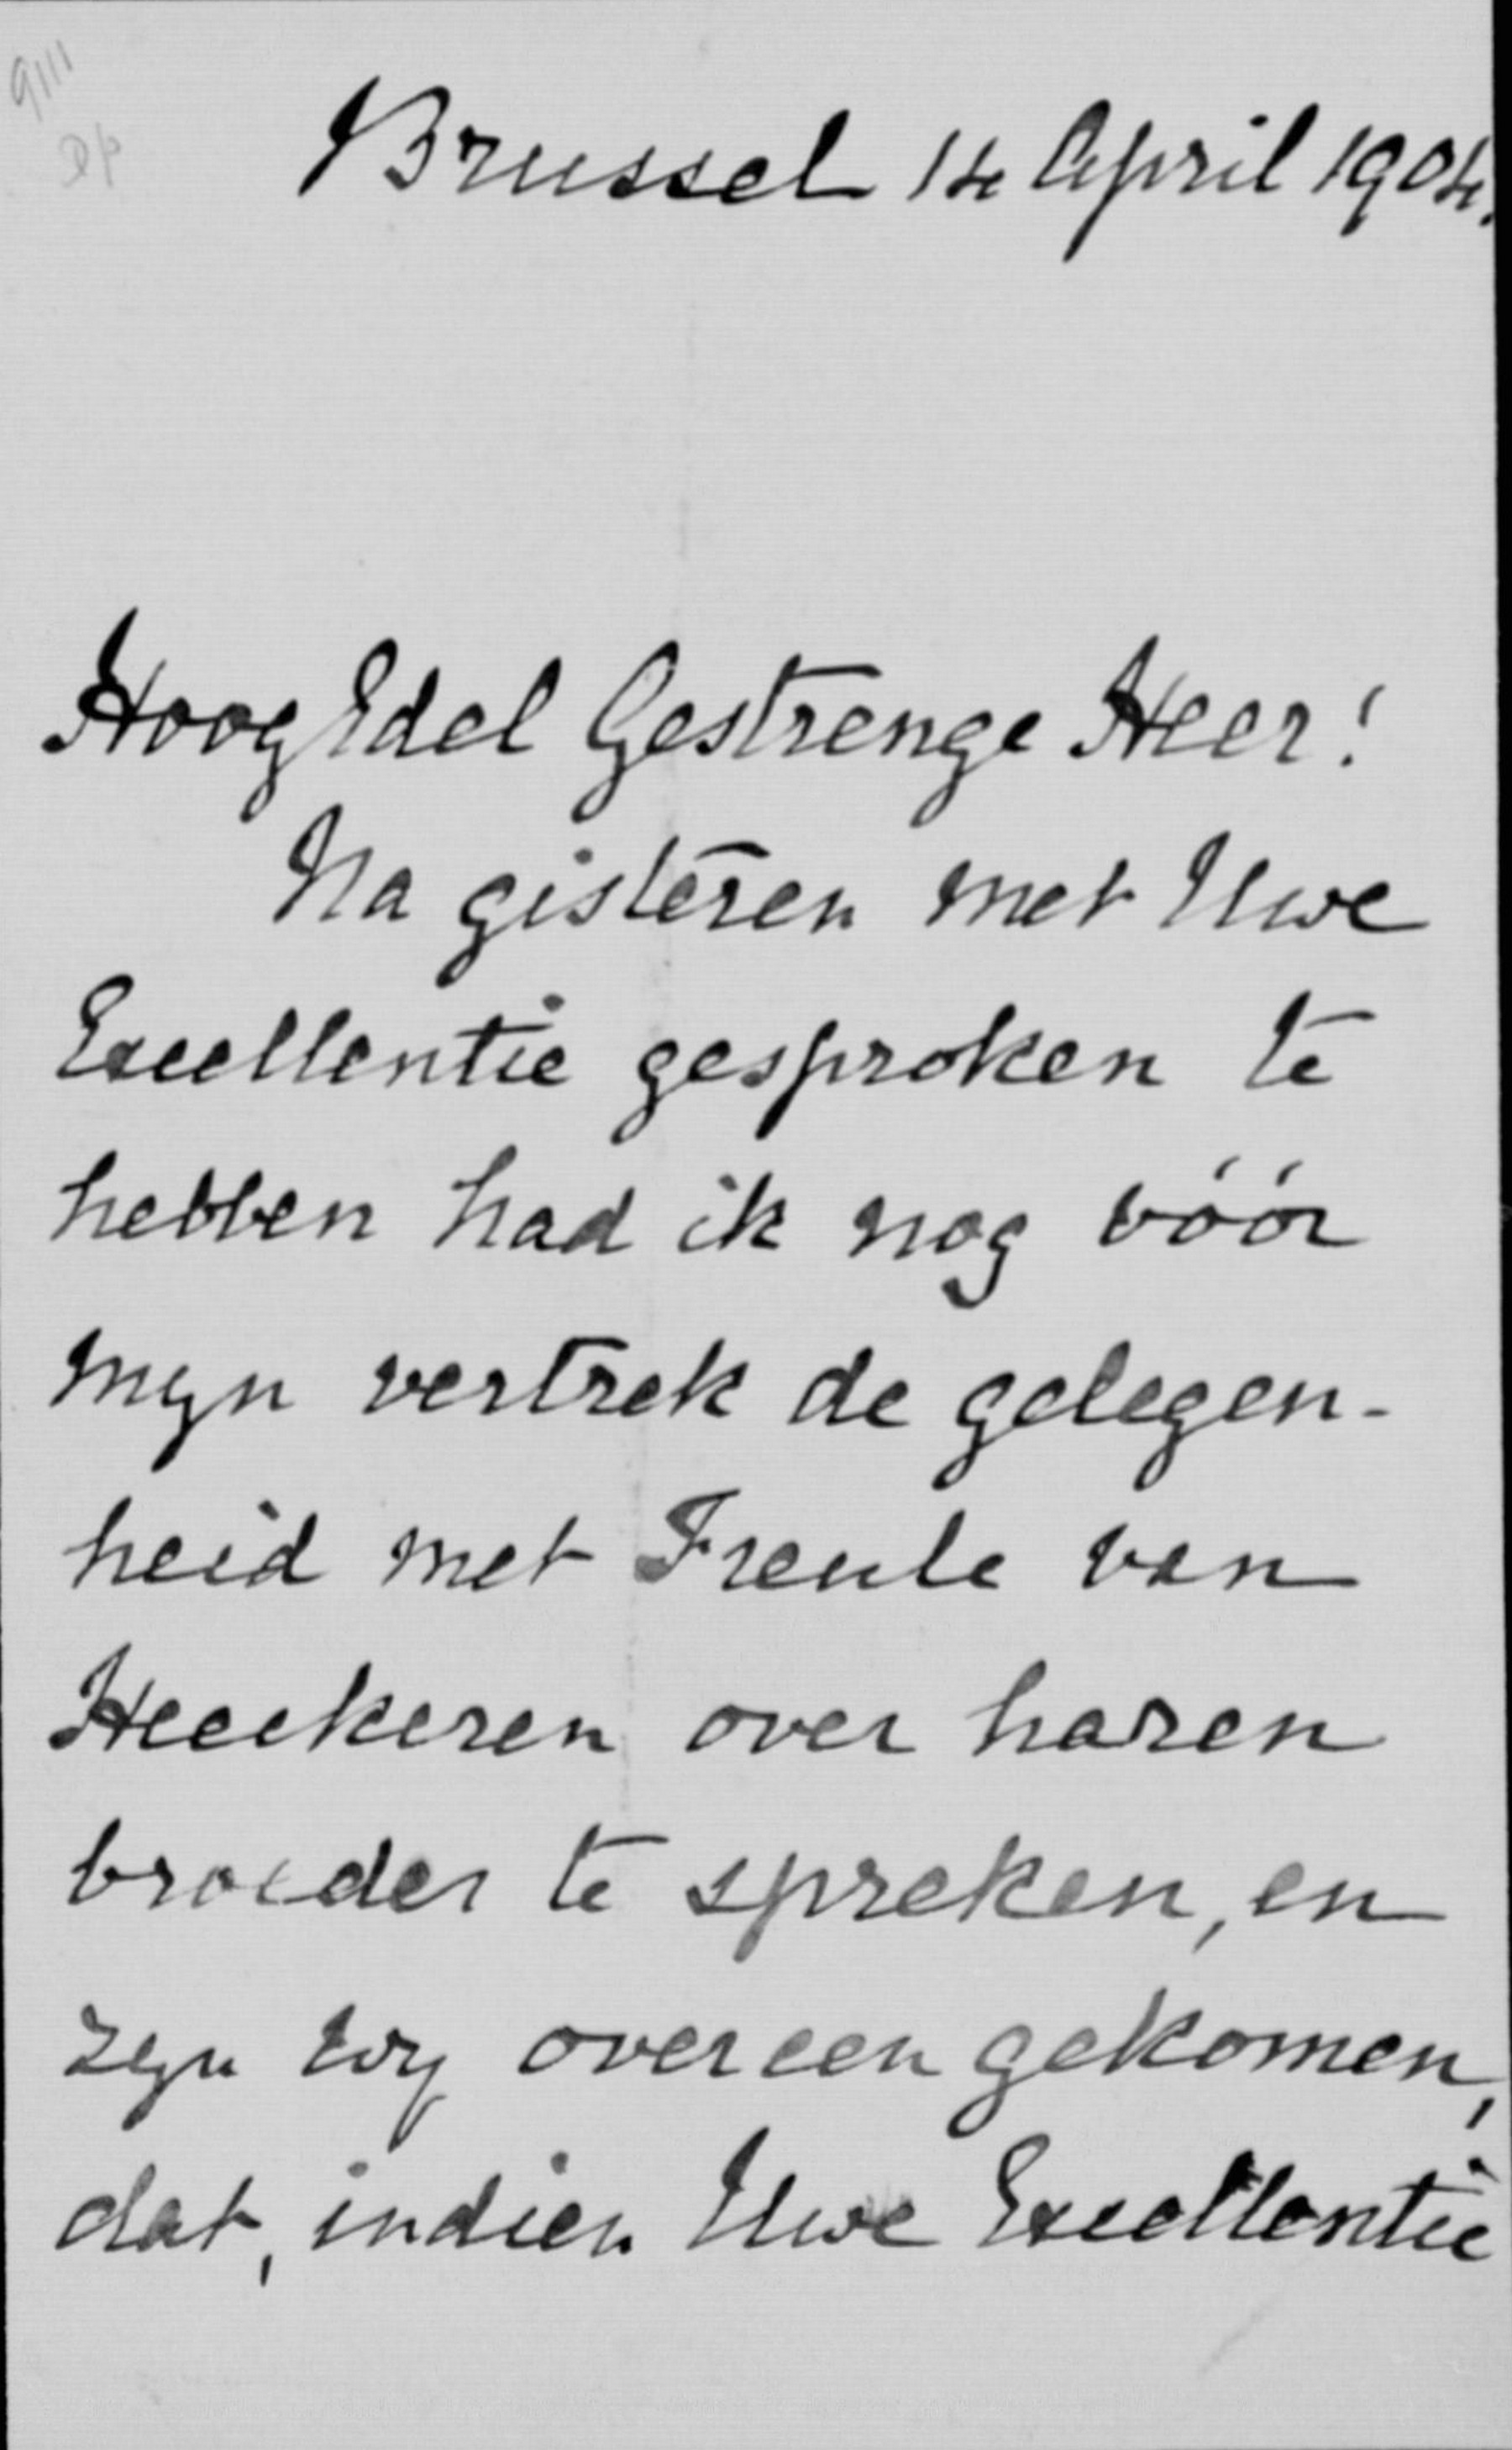 9111
Brussel 14 April 1904.
HoogEdel Gestrenge Heer!
Na gisteren met Uwe
Excellentie gesproken te
hebben had ik nog vóór
mijn vertrek de gelegen-
heid met Freule van
Heeckeren over haren
broeder te spreken, en
zijn wij overeengekomen,
dat, indien Uwe Excellentie